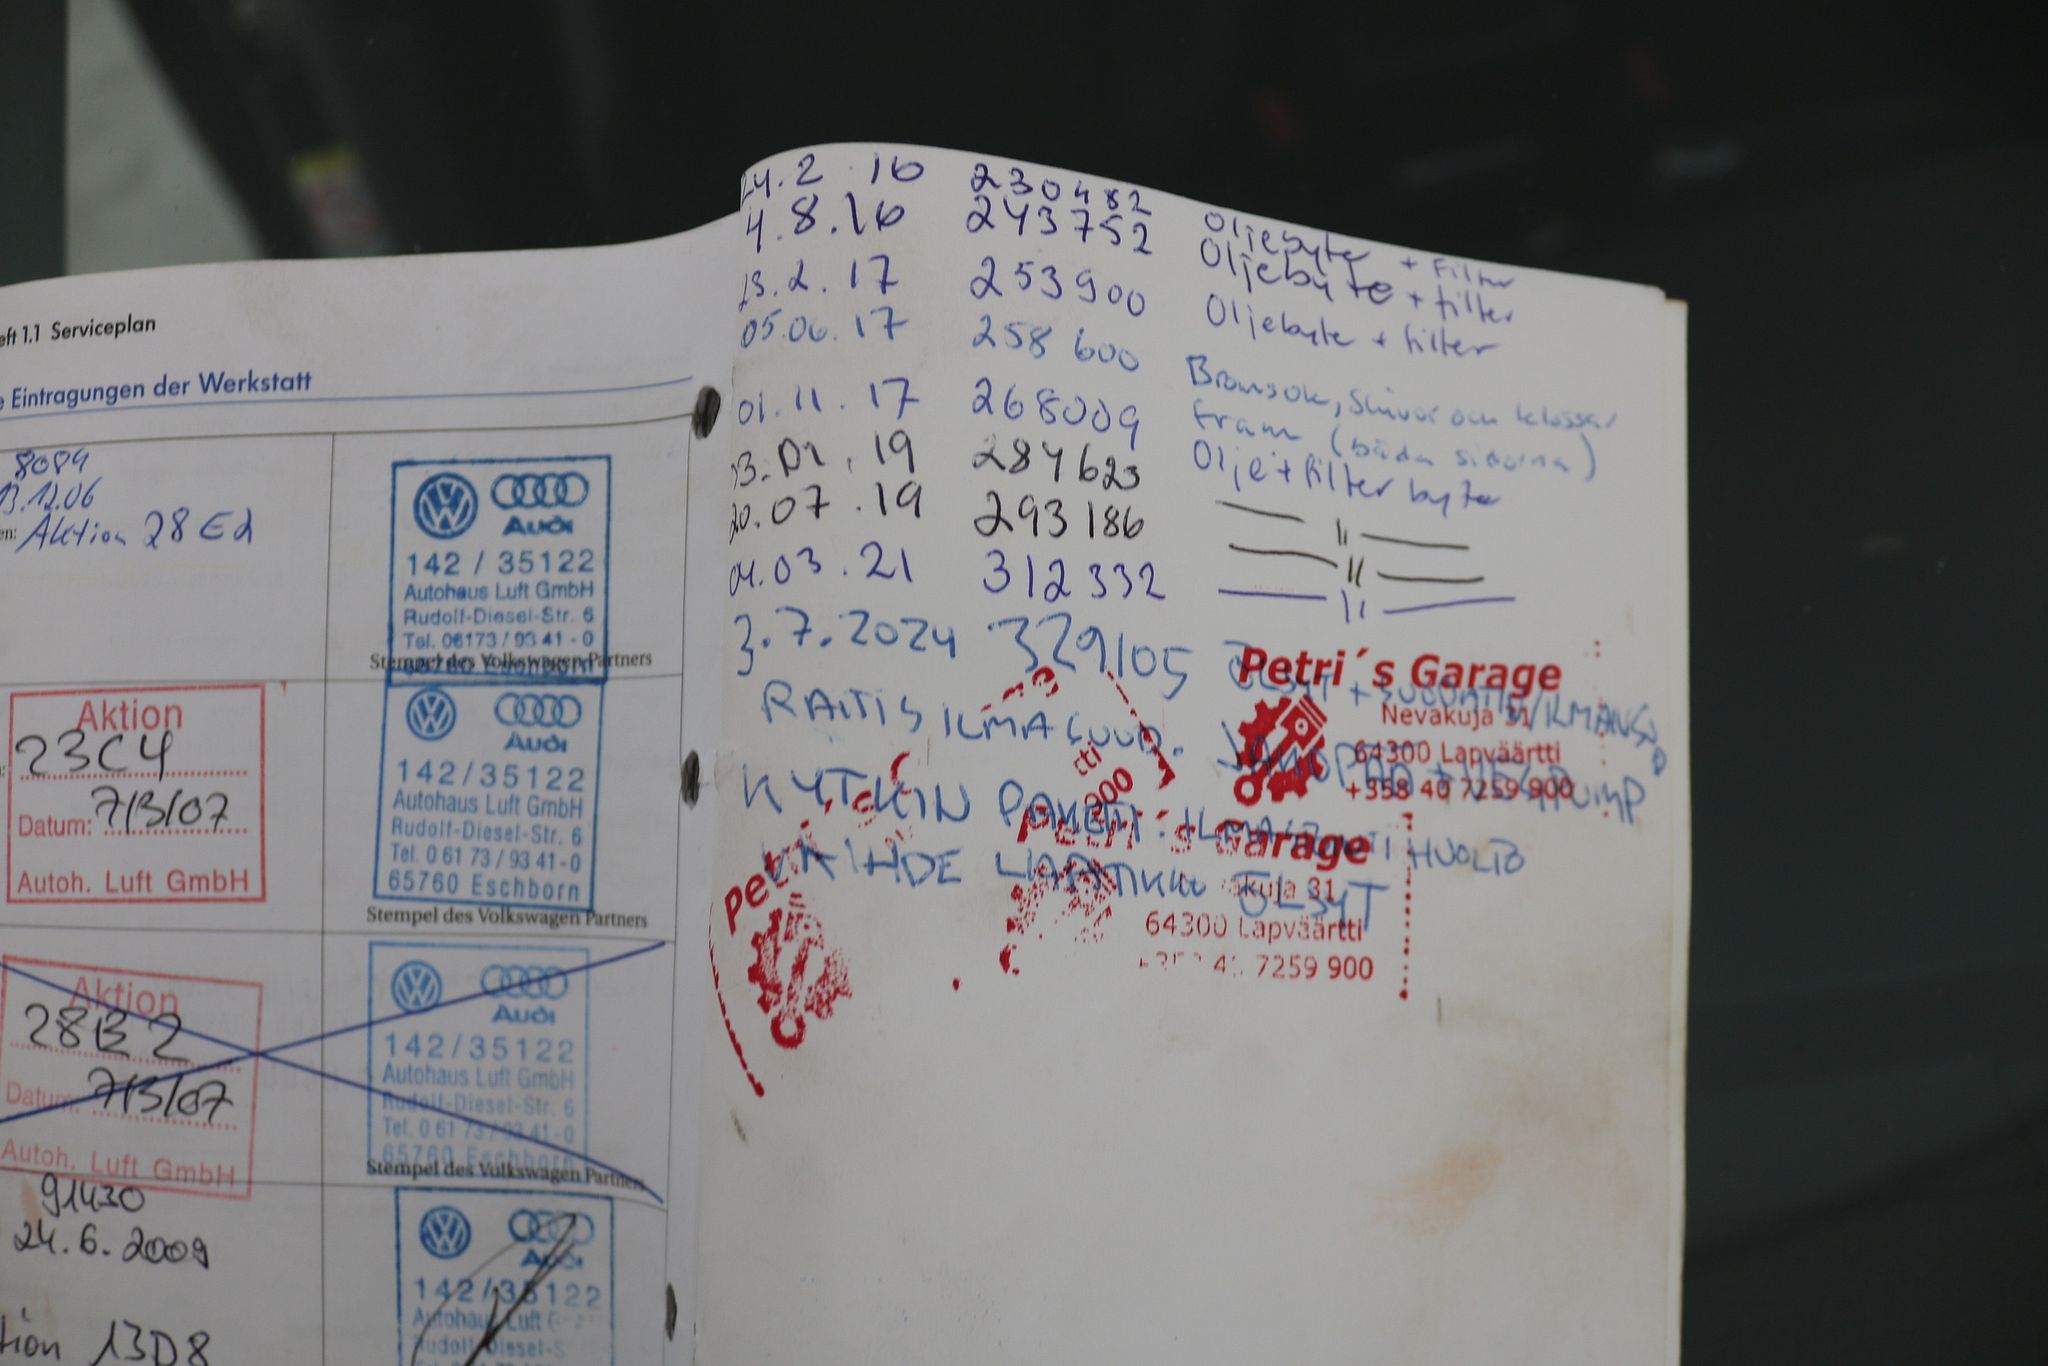 eft 1.1 Serviceplan
e Eintragungen der Werkstatt
8089
13.12.06
en: Aktion 28E2
Audi
142 / 35122
Autohaus Luft GmbH
Rudolf-Diesel-Str. 6
Tel. 06173 / 93 41 - 0
65760 Eschborn
Stempel des Volkswagen Partners
Aktion
23C4
Datum: 7/3/07
Autoh. Luft GmbH
Audi
142/35122
Autohaus Luft GmbH
Rudolf-Diesel-Str. 6
Tel. 0 61 73 / 93 41-0
65760 Eschborn
Stempel des Volkswagen Partners
Aktion
28B2
Datum: 7/3/07
Autoh. Luft GmbH
Audi
142/35122
Autohaus Luft GmbH
Rudolf-Diesel-Str. 6
Tel. 0 61 73 / 93 41-0
65760 Eschborn
Stempel des Volkswagen Partners
91430
24.6.2009
tion 13D8
Audi
142/35122
Autohaus Luft
Rudolf-Diesel-S
24.2.16 230482 Oljebyte + Filter
4.8.16 243752 Oljebyte + filter
13.2.17 253900 Oljebyte + filter
05.06.17 258600 Bromsok, skivor och klossar
fram (båda sidorna)
01.11.17 268009 Olje + filter byte
284623 — 11 —
20.07.19 293186 — 11 —
04.03.21 312332 — 11 —
3.7.2024 329105 ÖLJYT + SUODATIN/ILMANSUO
RAITIS ILMASUOD. JAKOPÄÄ + VESIPUMP
KYTKIN PAKETTI. ILMASTOINTI HUOLTO
VAIHDE LAATIKKO ÖLJYT
Petri´s Garage
Nevakuja 31
64300 Lapväärtti
+358 40 7259 900
Petri´s Garage
kuja 31
64300 Lapväärtti
7259 900
Petri